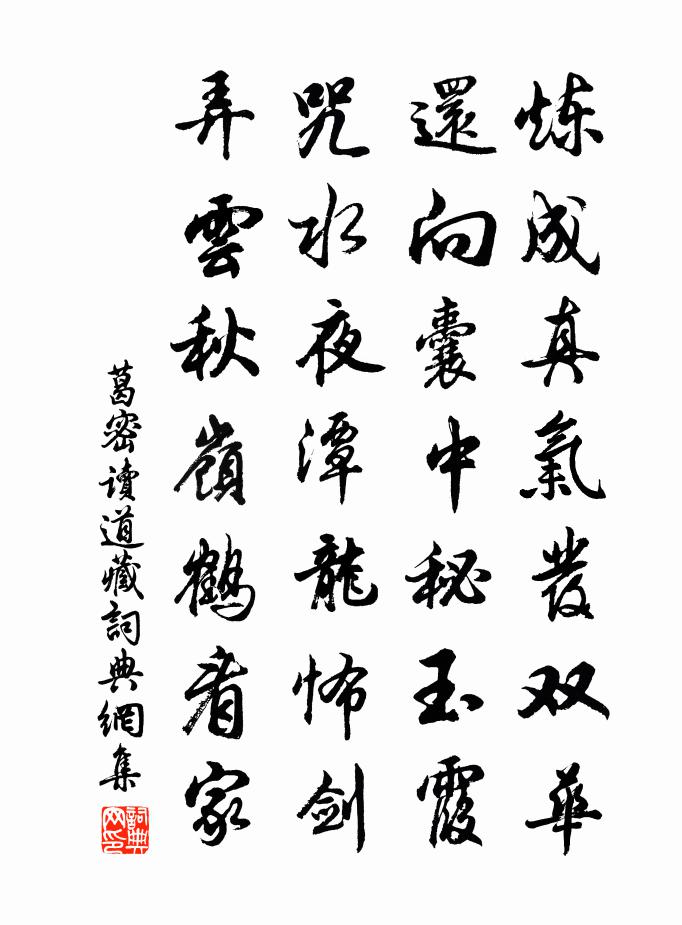 炼成真氣發双華
還向囊中秘玉霞
咒水夜潭龍怖剑
弄雲秋嶺鶴看家
葛密读道藏詞典網集
詞典网印